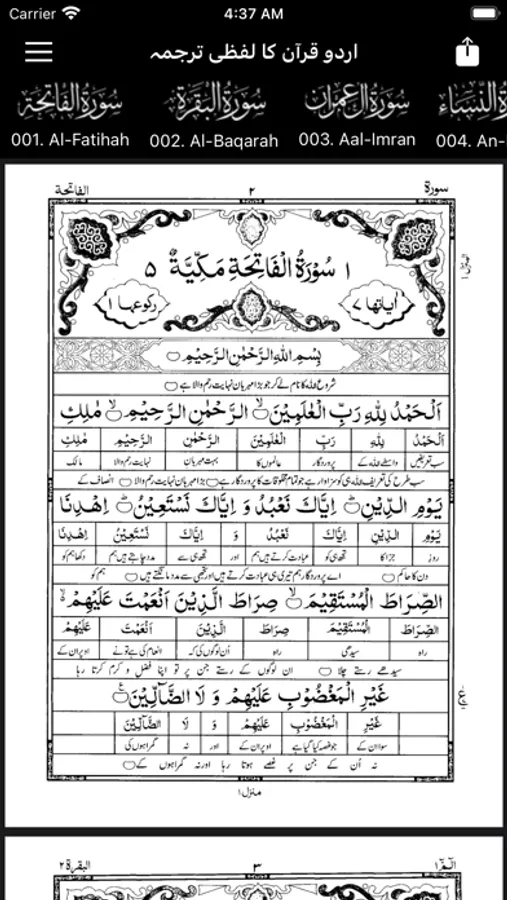 Carrier 4:37 AM
اردو قرآن کا لفظی ترجمہ
سورة الفاتحة سورة البقرة سورة آل عمران النساء
001. Al-Fatihah 002. Al-Baqarah 003. Aal-Imran 004. An-
سورة ٢ الفاتحة
١ سُوْرَةُ الْفَاتِحَةِ مَكِّيَّةٌ ٥
اٰیاتها ٧ رکوعها ١
بِسْمِ اللهِ الرَّحْمٰنِ الرَّحِيْمِ
شروع اللہ کا نام لے کر جو بڑا مہربان نہایت رحم والا ہے
اَلْحَمْدُ لِلّٰهِ رَبِّ الْعٰلَمِيْنَ ۙ الرَّحْمٰنِ الرَّحِيْمِ ۙ مٰلِكِ
اَلْحَمْدُ لِلّٰهِ رَبِّ الْعٰلَمِيْنَ الرَّحْمٰنِ الرَّحِيْمِ مٰلِكِ
سب تعریفیں واسطے اللہ کے پروردگار عالموں کا بہت مہربان نہایت رحم والا مالک
سب طرح کی تعریف اللہ ہی کو سزاوار ہے جو تمام مخلوقات کا پروردگار ہے بڑا مہربان نہایت رحم والا انصاف کے
يَوْمِ الدِّيْنِ ۗ اِيَّاكَ نَعْبُدُ وَ اِيَّاكَ نَسْتَعِيْنُ ۗ اِهْدِنَا
يَوْمِ الدِّيْنِ اِيَّاكَ نَعْبُدُ وَ اِيَّاكَ نَسْتَعِيْنُ اِهْدِنَا
روز جزا کا تجھ ہی کو عبادت کرتے ہیں ہم اور تجھ ہی سے مدد چاہتے ہیں ہم دکھا ہم کو
دن کا حاکم اے پروردگار ہم تیری ہی عبادت کرتے ہیں اور تجھی سے مدد مانگتے ہیں ہم کو
الصِّرَاطَ الْمُسْتَقِيْمَ ۙ صِرَاطَ الَّذِيْنَ اَنْعَمْتَ عَلَيْهِمْ ۙ
الصِّرَاطَ الْمُسْتَقِيْمَ صِرَاطَ الَّذِيْنَ اَنْعَمْتَ عَلَيْهِمْ
راہ سیدھی راہ اُن لوگوں کی کہ انعام کی ہے تو نے اوپر ان کے
سیدھے رستے چلا ان لوگوں کے رستے جن پر تو اپنا فضل و کرم کرتا رہا
غَيْرِ الْمَغْضُوْبِ عَلَيْهِمْ وَ لَا الضَّآلِّيْنَ
غَيْرِ الْمَغْضُوْبِ عَلَيْهِمْ وَ لَا الضَّآلِّيْنَ
سوا ان کے جو غصہ کیا گیا ہے اوپر ان کے اور نہ گمراہوں کی
نہ اُن کے جن پر غصے ہوتا رہا اور نہ گمراہوں کے
منزل ١
الٓمّٓ ١ ٣ البقرة ٢